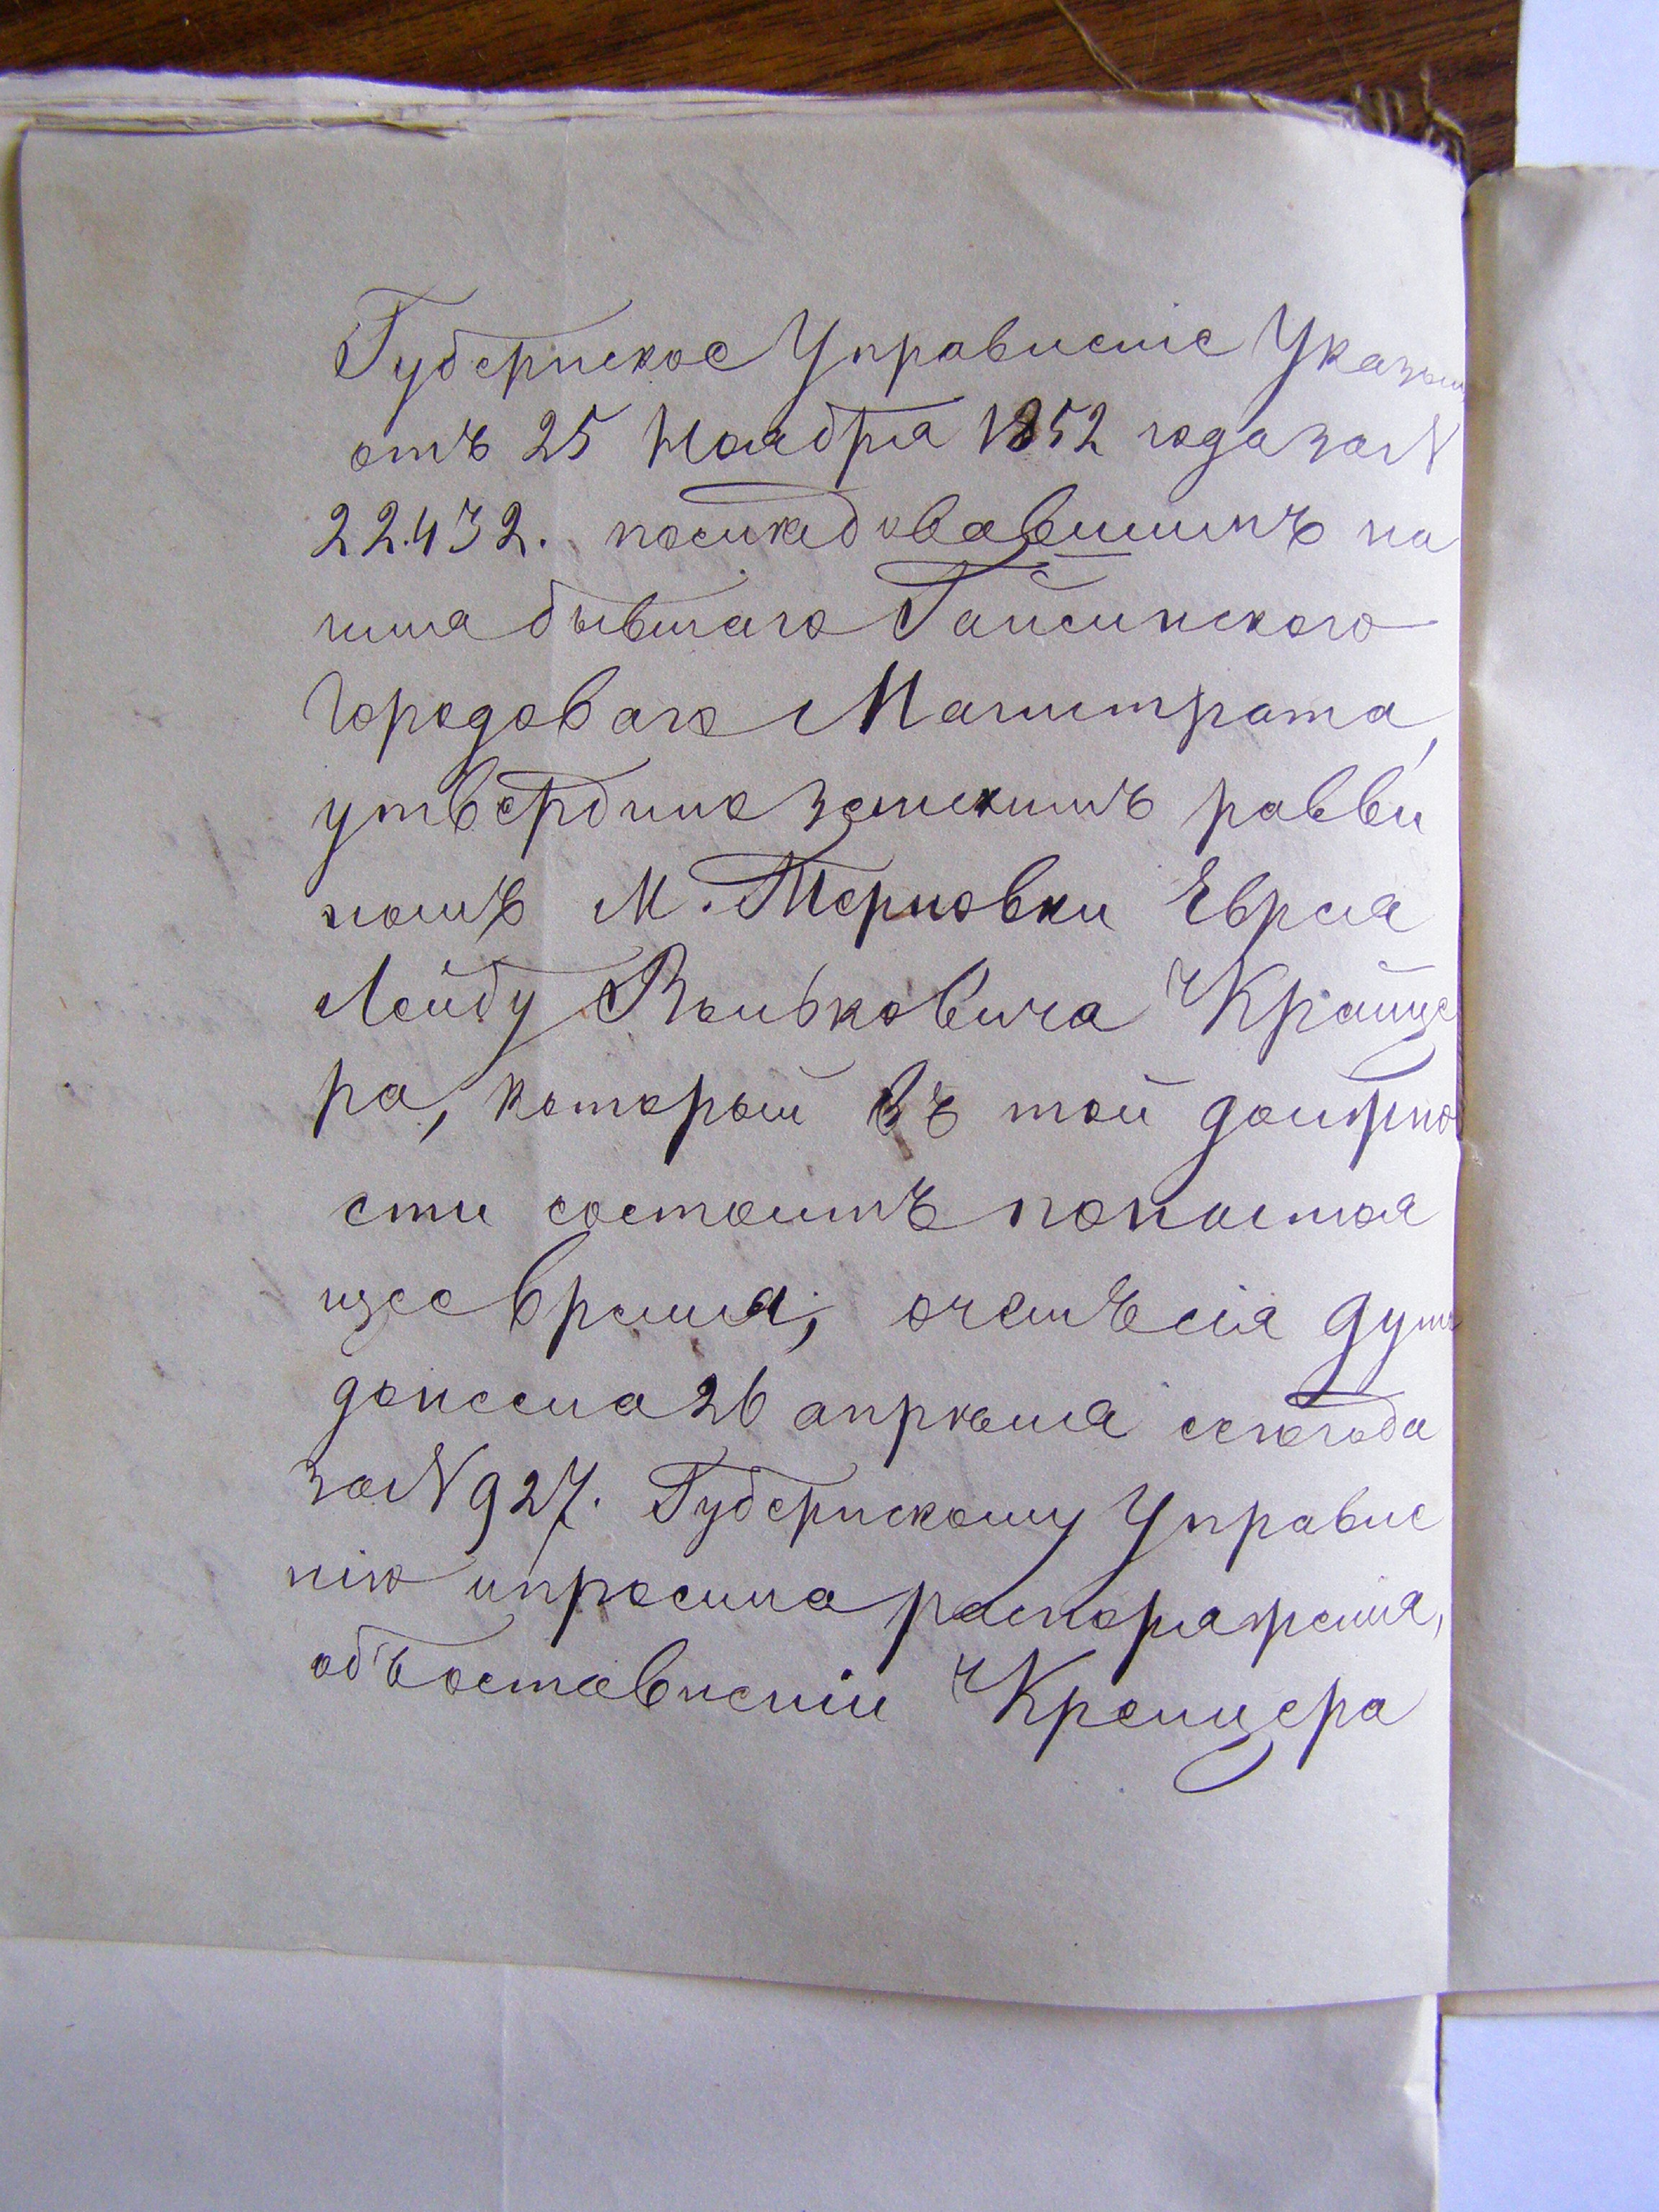 Губернское Управленіе Указомъ
отъ 25 Ноября 1852 года за №
22.432. последовавшимъ на
имя бывшаго Гайсинского
Городоваго Магистрата,
утвердило земскимъ равви
номъ М. Терновки Еврея
Лейбу Вольковича Крайце
ра, который въ той должно
сти состоитъ понастоя
щее время; очемъ сія Дума
донесла 26 апреля сего года
за № 927. Губернскому Управле
нію ипросила распоряженія,
объоставленіи Крейцера